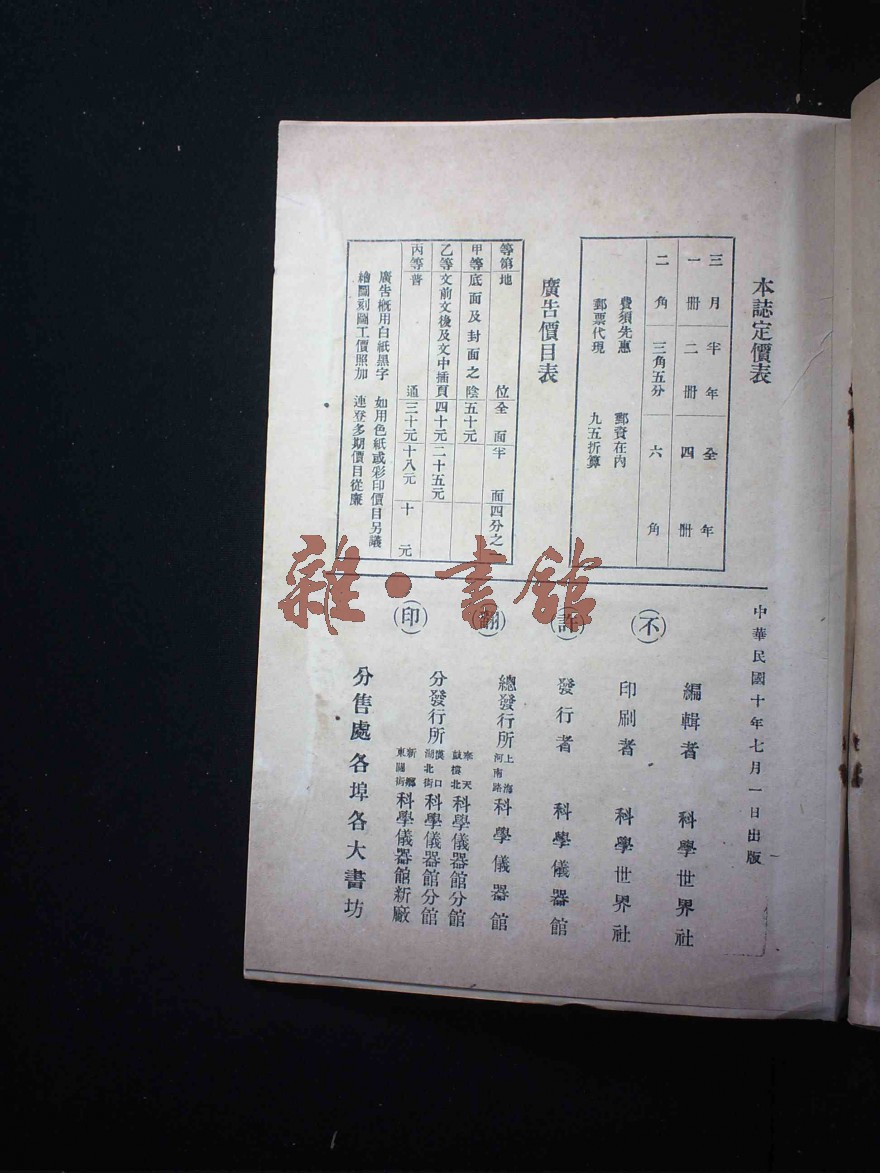 本誌定價表
三月 半年 全年
一冊 二冊 四冊
二角 三角五分 六角
費須先惠 郵資在內
郵票代現 九五折算
廣告價目表
等第 地位 全面 半面 四分之一
甲等 底面及封面之陰 五十元
乙等 文前文後及文中插頁 四十元 二十五元
丙等 普通 三十元 十八元 十元
廣告概用白紙黑字 如用色紙或彩印價目另議
繪圖刻圖工價照加 連登多期價目從廉
中華民國十年七月一日出版
不許翻印
編輯者 科學世界社
印刷者 科學世界社
發行者 科學儀器館
總發行所 上海河南路 科學儀器館
分發行所 奉天鼓樓北 科學儀器館分館
漢口湖北街 科學儀器館分館
東關街 科學儀器館新廠
分售處 各埠各大書坊
雜·書館